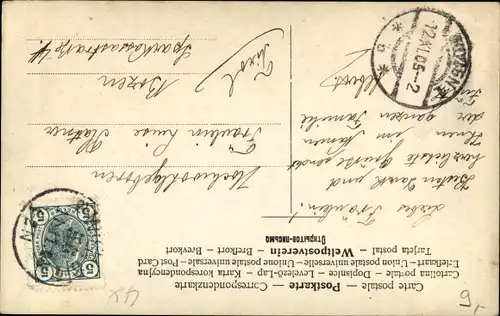 Carte postale — Postkarte — Correspondenzkarte
Cartolina postale — Dopisnice — Levelező-Lap — Karta korespondencyjna
Briefkaart — Union postale universelle — Unione postale universale — Post Card
Tarjeta postal — Weltpostverein — Brefkort — Brevkort
Открытое-письмо
Liebes Fräulein!
Besten Dank und
herzlichste Grüße sendet
Ihnen im Namen
der ganzen Familie
Hochwohlgeboren
Fräulein Luise
Bozen
Sparkassastraße 4
Tirol
BOZEN
12.XI.05-2
5
5
4x